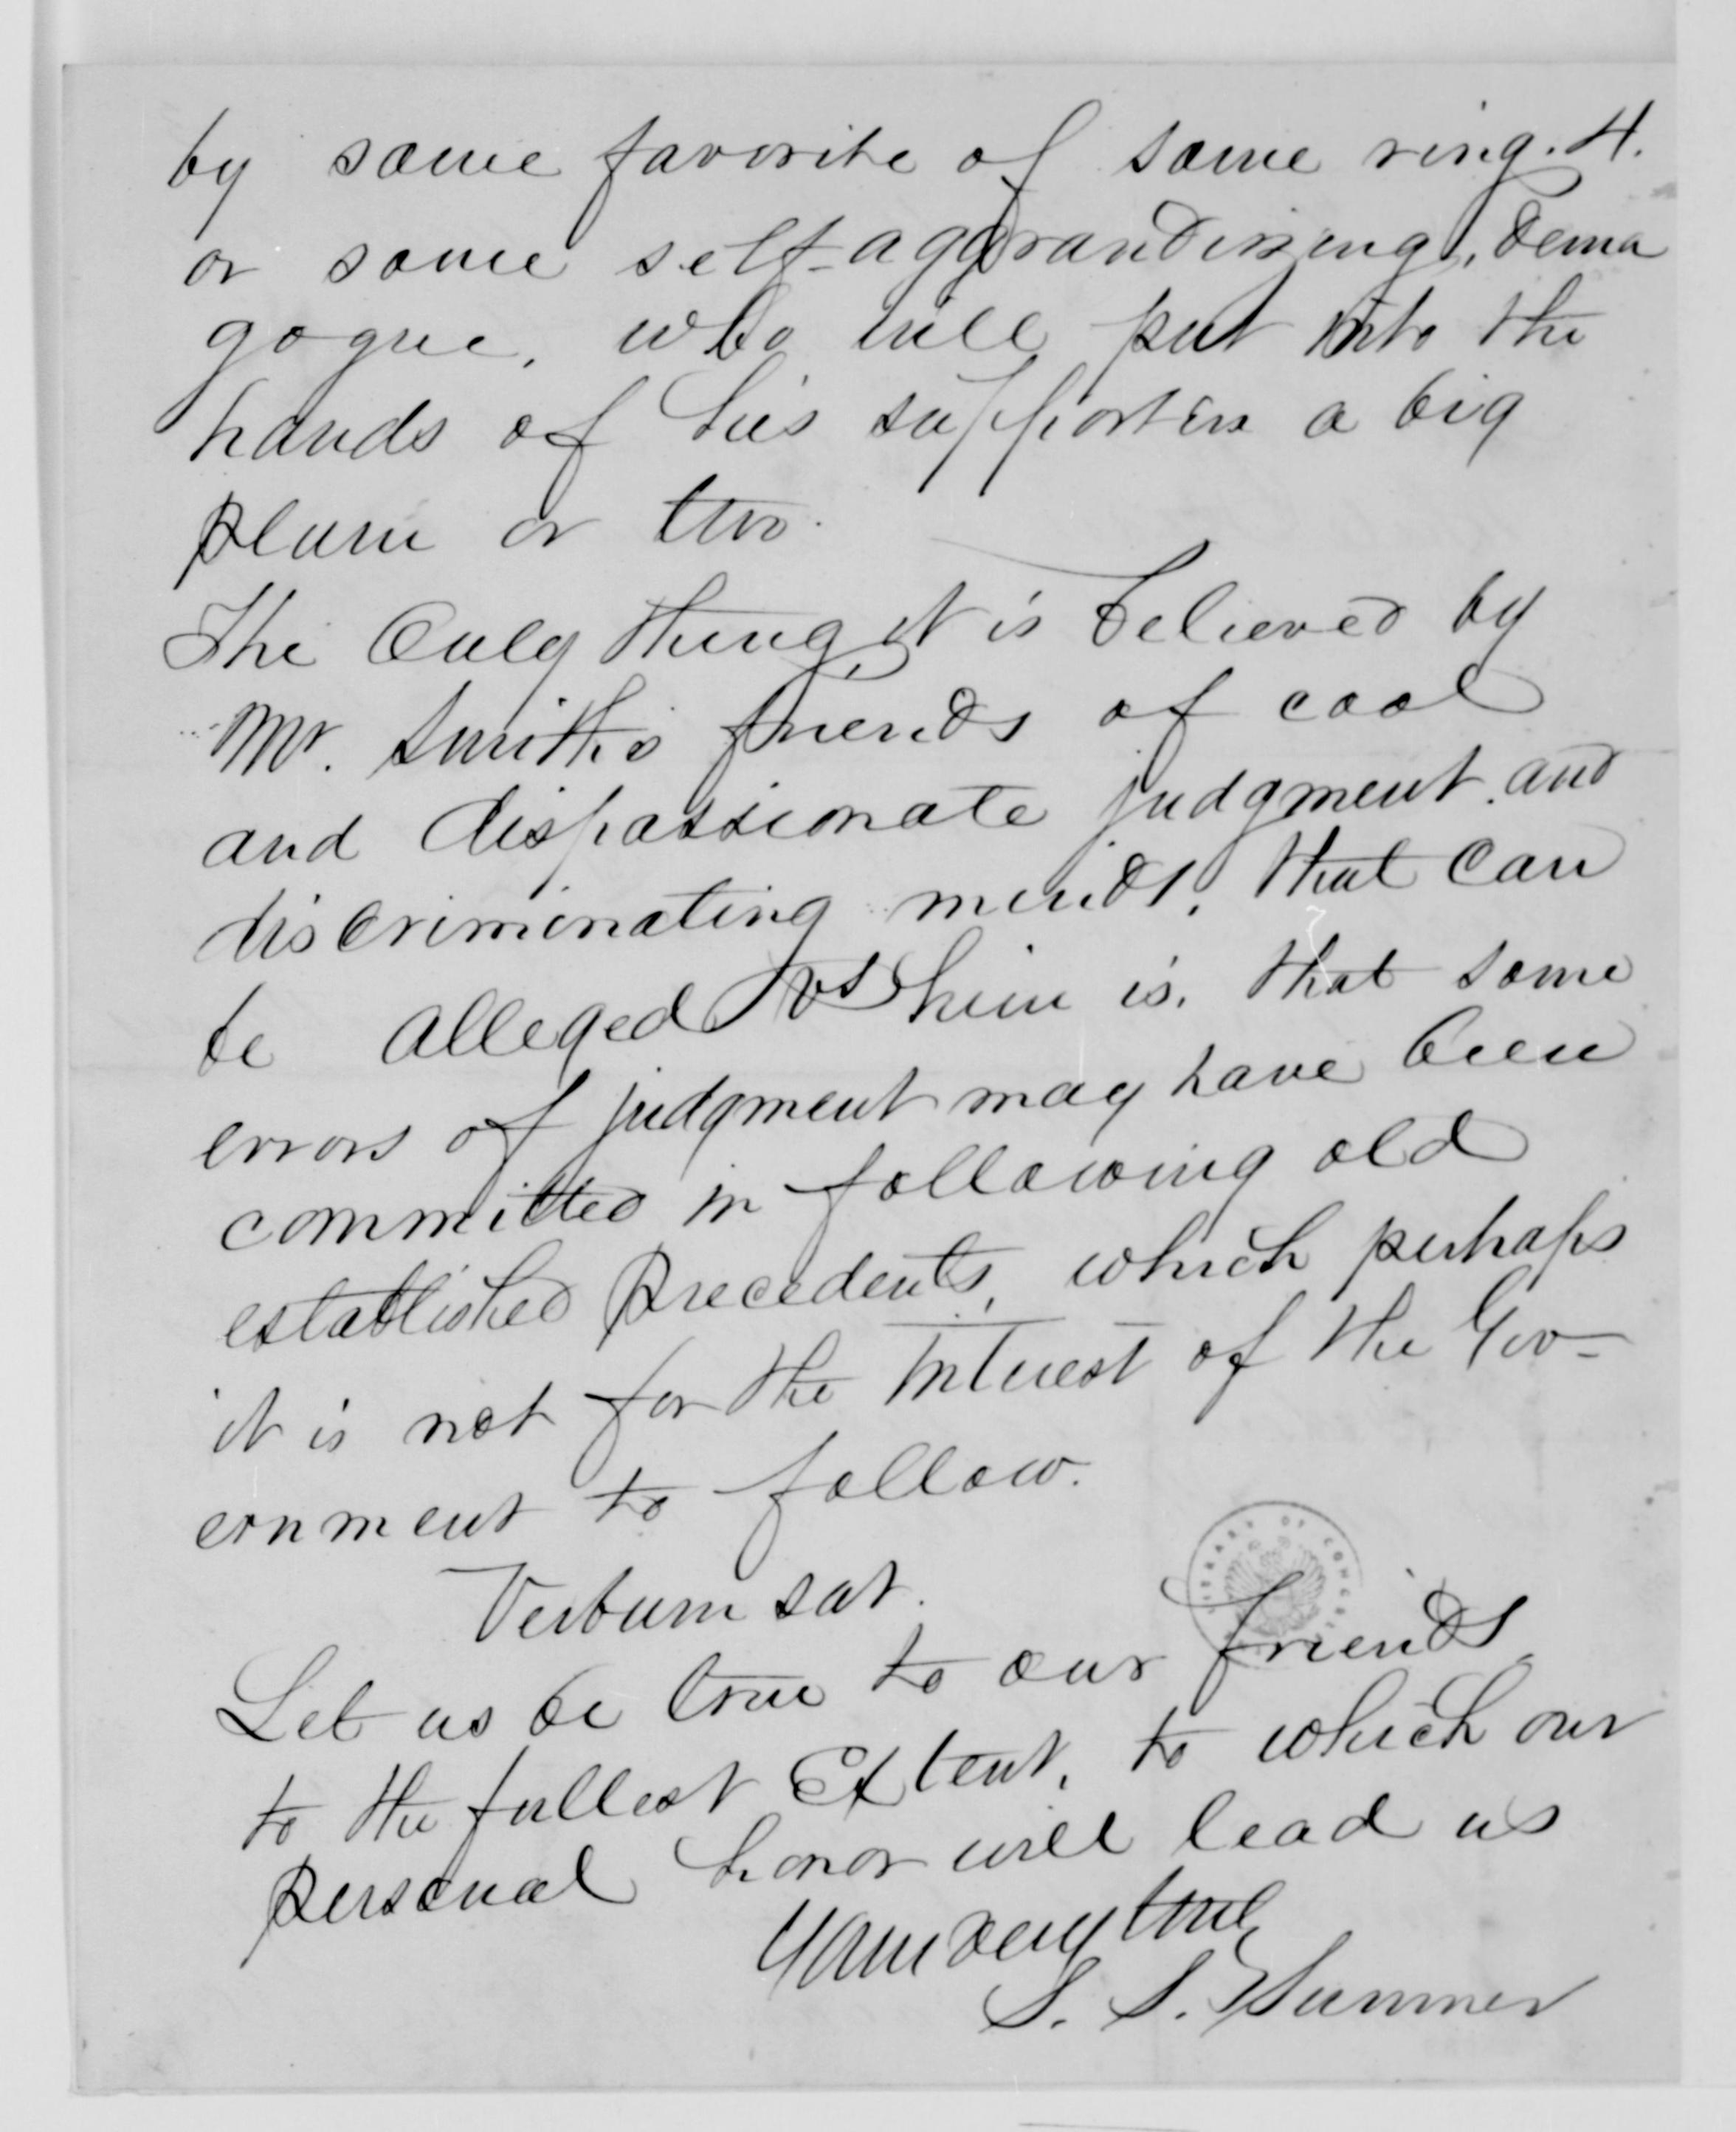 by some favorite of some ring. 4.
or some self-aggrandizing, dema
gogue, who will put into the
hands of his supporters a big
plum or two.
The Only thing, it is believed by
Mr. Smith's friends of cool
and dispassionate judgment. and
discriminating minds, that can
be alleged vs him is, that some
errors of judgment may have been
committed in following old
established precedents, which perhaps
it is not for the interest of the Gov-
ernment to follow.
Verbum sat.
LIBRARY OF CONGRESS
Let us be true to our friends
to the fullest Extent, to which our
personal honor will lead us
Yours very truly
S. S.